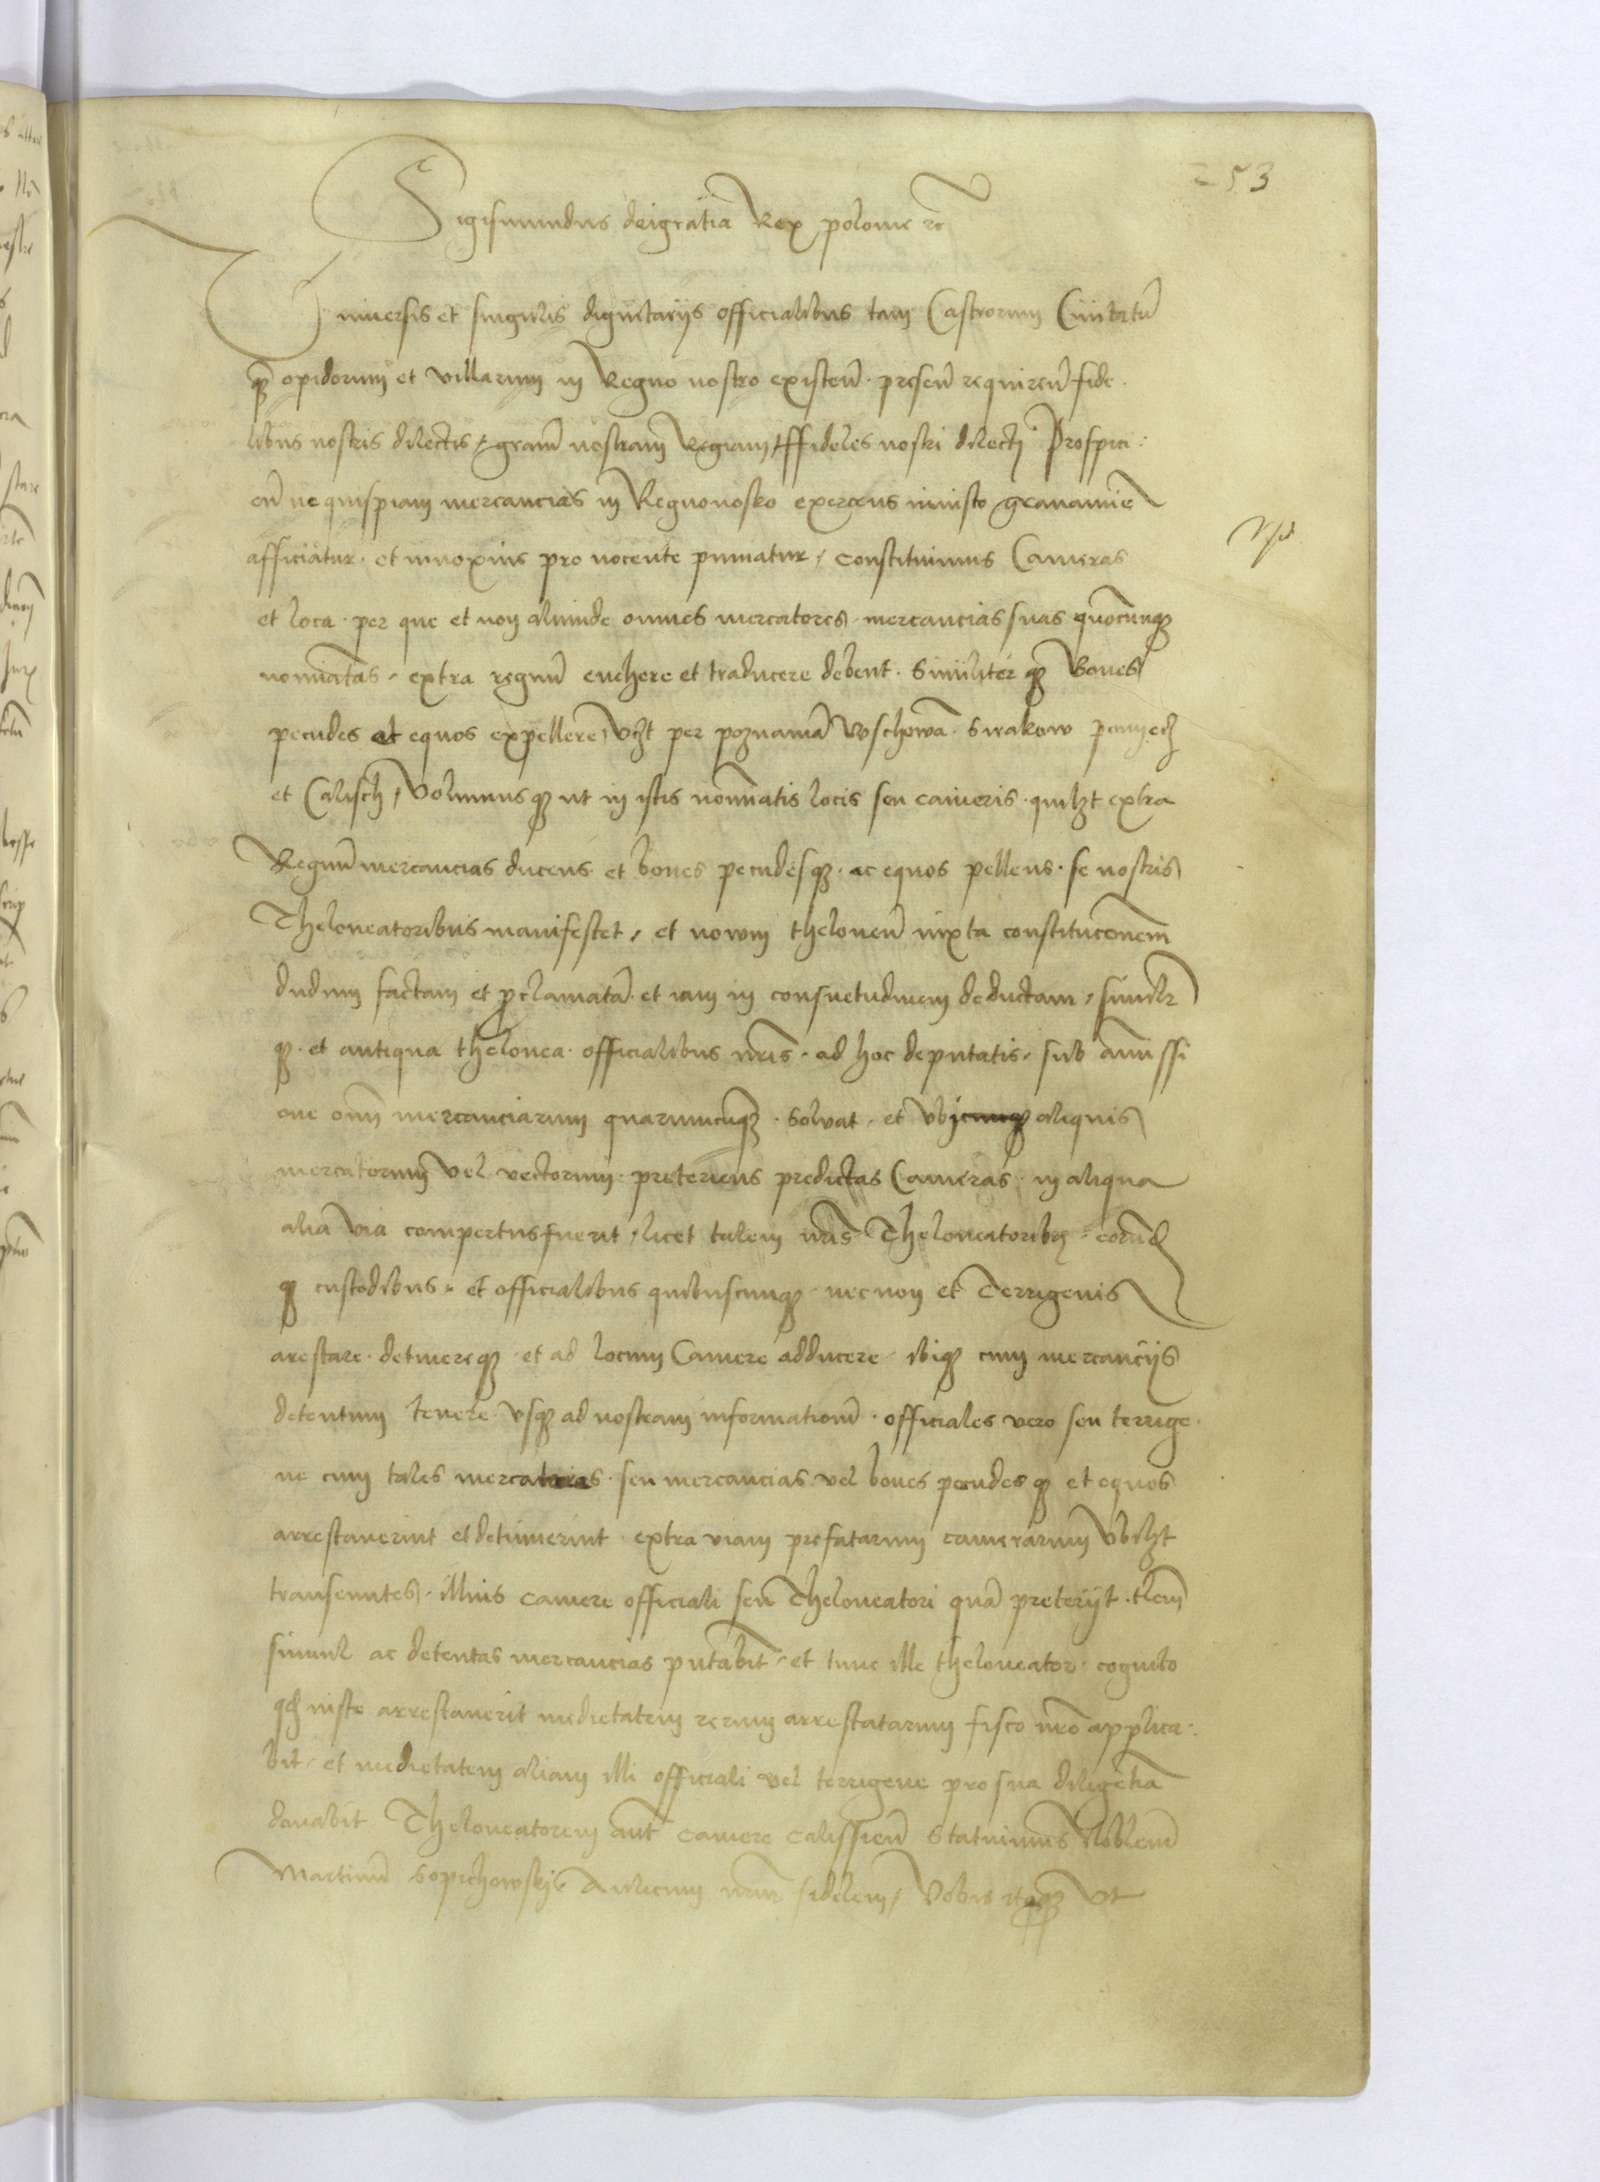 53
Sigismundus dei gratia Rex polonie ⁊c
Vniuersis et singulis dignitariis officialibus tam Castrorum Ciuitatũ
qꝫ opidorum et villarum in Regno nostro existen̄ · presen̄ requiren̄ fide
libus nostris dilectis / gram̄ nostram Regiam / ffideles nostri dilecti Prospici
en̄ ne quispiam mercancias in Regno nostro exercens iniusto grauamine
afficiatur · et innoxius pro nocente puniatur / constituimus Cameras
et loca · per que et non aliunde omnes mercatores · mercancias suas quocunqꝫ
nominatas · extra regnū euehere et traducere debent · Similiter qꝫ Boues
pecudes et equos expellere / vꝫt per poznaniā Wschowā Swakow
et Calisch / Volumus qꝫ ut in istis nominatis locis seu cameris · quilꝫt extra
Regnū mercancias ducens et boues pecudes qꝫ · ac equos pellens · se nostris
Theloneatoribus manifestet / et nowm theloneū iuxta constitucionem
dudum factam et proclamatā · et iam in consuetudinem deductam / similr
qꝫ · et antiqua thelonea · officialibus nr̄is · ad hoc deputatis · sub amissi
one om̄i mercanciarum quarumcunqꝫ · soluat · et vbi aliquis
mercatorum vel vectorum · preteriens predictas Cameras · in aliqua
alia via compertus fuerit / licet talem nr̄is Theloneatoribꝫ · eorund
qꝫ custodibus · et officialibus quibuscunqꝫ · nec non et Terrigenis
arestare · detinere qꝫ · et ad locum Camere adducere · ibiqꝫ cum mercanciis
detentum tenere vsqꝫ ad nostram informationē · officiales vero seu terrige
ne cum tales mercatores · seu mercancias vel boues pecudes qꝫ et equos
arrestauerint et detinuerint · extra viam prefatarum camerarum vbilꝫt
transeuntes · illius camere officiali seu Theloneatori quā preteriit · tlem̄
simul ac detentas mercancias pn̄tabit · et tunc ille theloneator · cognito
qꝫ iuste arrestauerit medietatem rerum arrestatarum fisco nr̄o applica
bit · et medietatem aliam illi officiali vel terrigene pro sua diligētia
donabit Theloneatorem aut̄ camere calissien̄ Statuimus Nobilem̄
Martinū Aulicum nr̄um fidelem / Vobis itaqꝫ vt